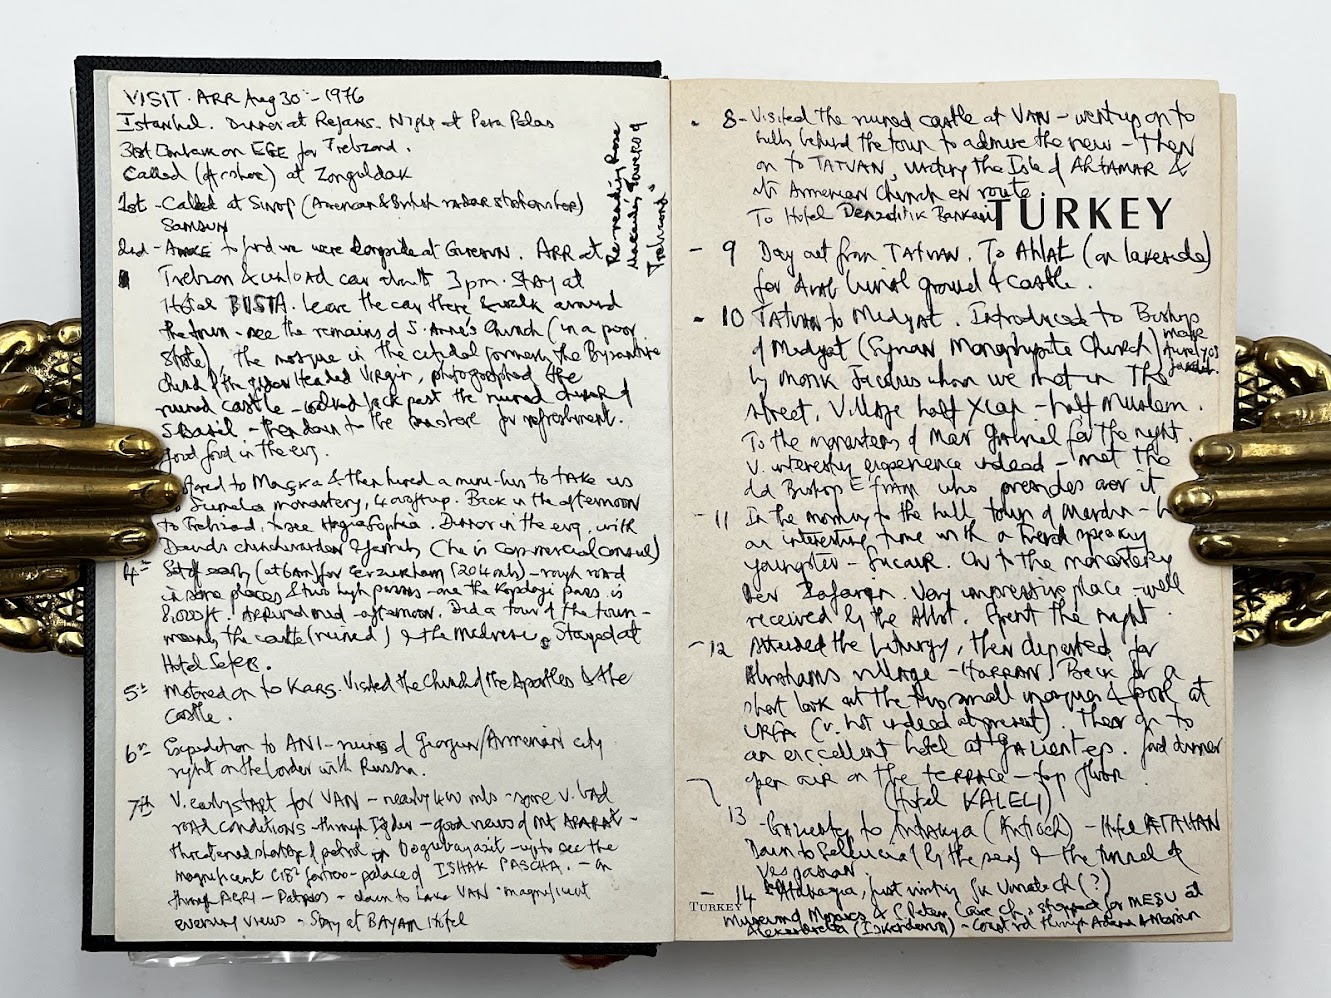 VISIT. ARR Aug 30th - 1976
Istanbul. Dinner at Rejans. Night at Pera Palas
31st Embark on EGE for Trebzond.
Called (offshore) at Zonguldak
1st - Called at Sinop (American & British radar stations here)
Samsun
2nd - Awake to find we were alongside at Giresun. ARR at
Trebzon & unload car about 3pm. Stay at
Hotel USTA. Leave the car there & walk around
the town - see the remains of S. Anne's Church (in a poor
state), the mosque in the citadel formerly the Byzantine
church of the Headed Virgin, photographed the
ruined castle - walked back past the ruined church of
S Basil - then down to the for refreshment.
good food in the evg.
Re-reading Rose
Macaulay's Towers of
Trebizond"
to Maçka & then hired a mini-bus to take us
to Sumela monastery, 4000ft up. Back in the afternoon
to Trebizond, to see Hagia Sophia. Dinner in the evg. with
& family (he is commercial consul)
4th Set off early (at 6am) for Erzurum (204 mls) - rough road
in some places & two high passes - one the Kopdagi pass is
8,000ft. Arrived mid-afternoon. Did a tour of the town -
the castle (ruined) & the Medrese. Stayed at
Hotel Sefer.
5th Motored on to Kars. Visited the Church of the Apostles & the
castle.
6th Expedition to ANI - ruins of Georgian/Armenian city
right on the border with Russia.
7th V. early start for VAN - nearly 400 mls - some v. bad
road conditions - through Igdir - good views of Mt ARARAT -
threatened shortage of petrol in Dogubayazit - up to see the
magnificent C18th palace of ISHAK PASCHA. - on
through AGRI - Patnos - down to Lake VAN - magnificent
evening views - Stay at BAYAM Hotel
8 - Visited the ruined castle at VAN - went up on to
hills behind the town to admire the view - Then
on to TATVAN, visiting the Isle of AHTAMAR &
its Armenian Church en route.
To Hotel Denzcilik Bankasi
TURKEY
- 9 Day out from TATVAN. To Ahlat (on lakeside)
for Arab burial ground & castle.
- 10 TATVAN to Midyat. Introduced to Bishop
of Midyat (Syrian Monophysite Church)
by Monk Jacques whom we met in the
street. Village half Xtian - half Muslem.
To the monastery of Mar Gabriel for the night.
V. interesting experience indeed - met the
old Bishop Efram who presides over it
- 11 In the morning to the hill town of Mardin -
an interesting time with a French speaking
youngster - On to the monastery
Der Zafaran. Very impressive place - well
received by the Abbot. Spent the night.
- 12 Attended the Liturgy, then departed for
Abrahams village - HARRAN. Back for a
short look at the two small mosques & pool at
URFA (v. hot indeed at present). Then on to
an excellent hotel at Gaziantep. Good dinner
open air on the TERRACE - top floor
(Hotel KALELI)
13 - Gaziantep to Antakya (Antioch) - Hotel ATAHAN
Down to Selleucia (by the sea) & the tunnel of
Vespasian.
- 14
TURKEY
Museum of Mosaics & S Peters Cave Ch, stopped for at
Alexandretta (Iskenderun) - coast rd through Adana & Mersin